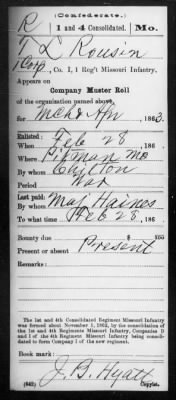 (Confederate.)
R 1 and 4 Consolidated Mo.
T L Rousin
Corp, Co. I, 1 Reg't Missouri Infantry,
Appears on
Company Muster Roll
of the organization named above,
for Mch & Apr, 1863.
Enlisted:
When Feb 28, 186
Where Pitman Mo
By whom Chilton
Period War
Last paid:
By whom Maj Haines
To what time Feb 28, 186
Bounty due $ 100
Present or absent Present
Remarks:
The 1st and 4th Consolidated Regiment Missouri Infantry
was formed about November 1, 1862, by the consolidation of
the 1st and 4th Regiments Missouri Infantry, Companies D
and I of the 4th Regiment Missouri Infantry being consolidated
to form Company I of the new regiment.
Book mark:
(642) J. B. Hyatt
Copyist.